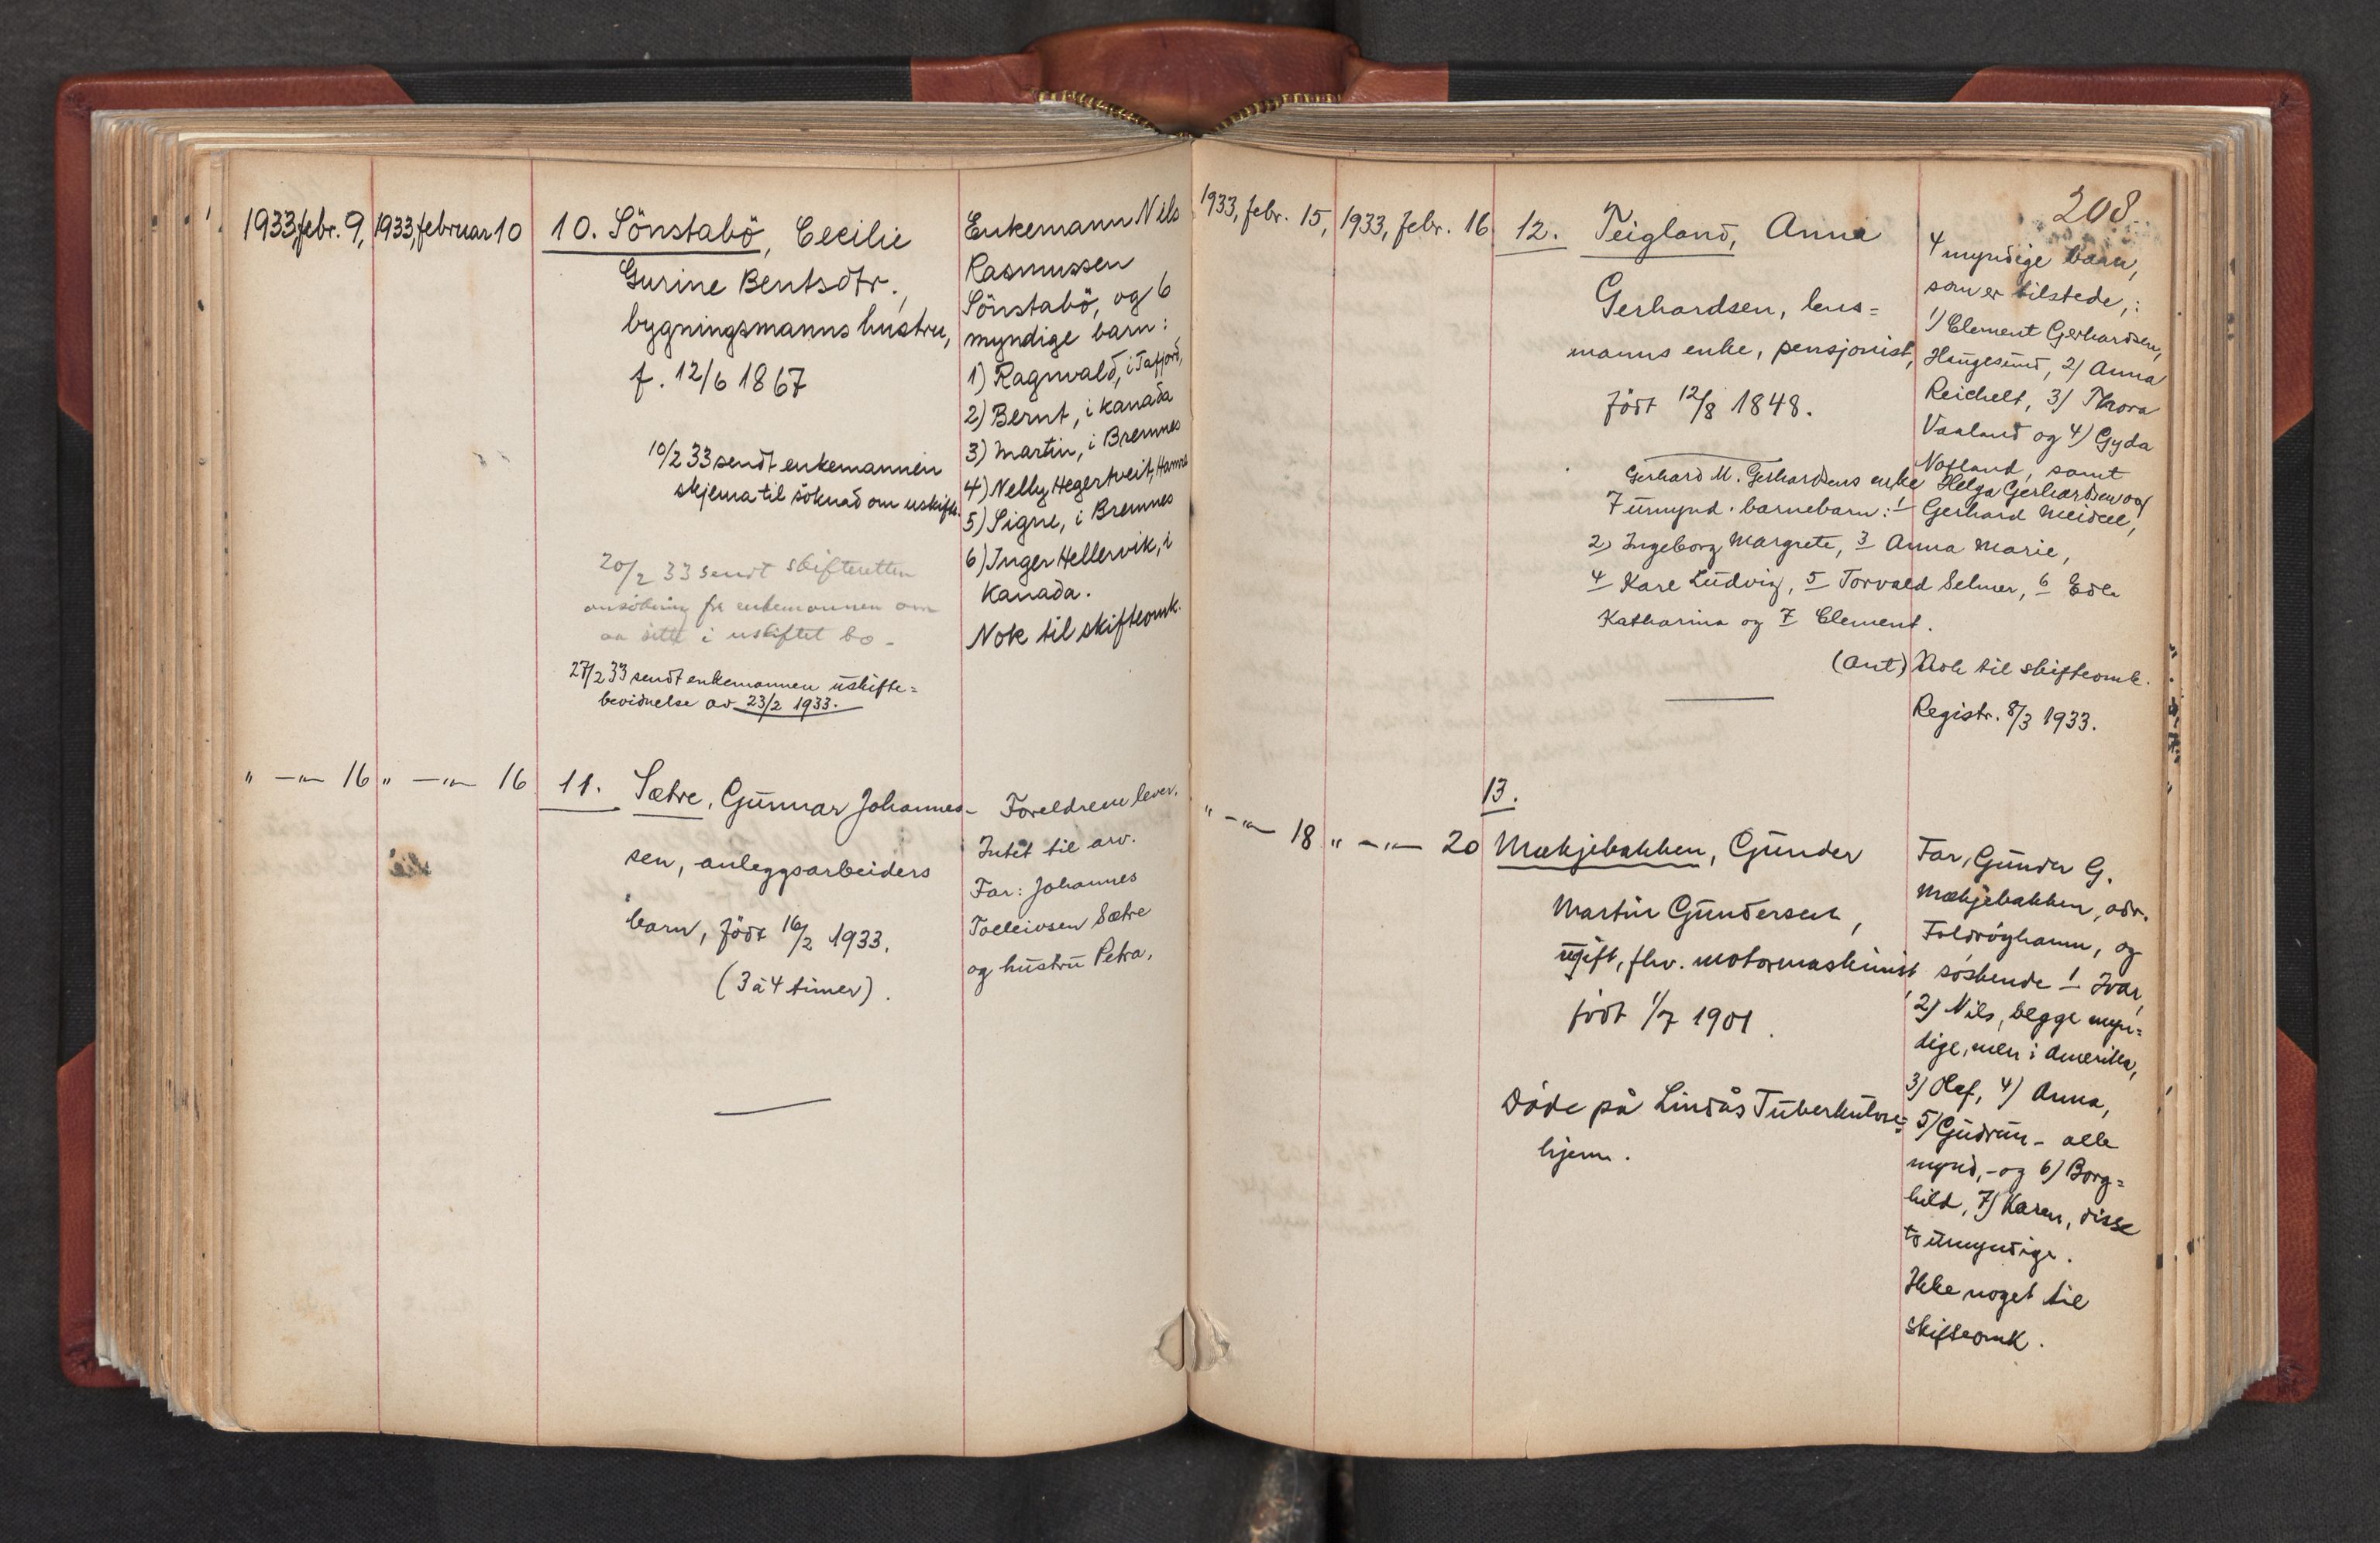 1933, febr. 9, 1933, februar 10 10. Sönstabö, Cecilie
Gurine Bentsdtr.,
bygningsmanns hustru,
f. 12/6 1867
10/2 33 sendt enkemannen
skjema til söknad om uskifte.
20/2 33 sendt skifteretten
ansökning fra enkemannen om
aa sitte i uskiftet bo.
27/2 33 sendt enkemannen uskifte=
bevidnelse av 23/2 1933.
Enkemann Nils
Rasmussen
Sönstabö, og 6
myndige barn:
1) Ragnvald, i Tafjord,
2) Bernt, i Kanada
3) Martin, i Bremnes
4) Nelly Hegertveit, Hamre
5) Signe, i Bremnes
6) Inger Hellervik, i
Kanada.
Nok til skifteomk.
" —"— 16 " —"— 16 11. Sætre, Gunnar Johannes-
sen, anleggsarbeiders
barn, født 16/2 1933.
(3 à 4 timer).
Foreldrene lever.
Intet til arv.
Far: Johannes
Tolleivsen Sætre
og hustru Petra.
208.
1933, febr. 15, 1933, febr. 16 12. Teigland, Anna
Gerhardsen, lens=
manns enke, pensjonist,
født 12/8 1848.
4 myndige barn,
som er tilstede,:
1) Clement Gerhardsen,
Haugesund, 2) Anna
Reichelt, 3) Thora
Vaaland og 4) Gyda
Notland, samt
Gerhard M. Gerhardsens enke Helga Gerhardsen og
7 umynd. barnebarn: 1 Gerhard Meidell,
2) Ingeborg Margrete, 3 Anna Marie,
4 Karl Ludvig, 5 Torvald Selmer, 6 Edle
Katharina og 7 Clement.
(Ant) Nok til skifteomk.
Registr. 8/3 1933.
13.
" —"— 18 " —"— 20 Mækjebakken, Gunder
Martin Gundersen,
ugift, fhv. motormaskinist,
født 1/7 1901.
Døde på Lindås Tuberkulose=
hjem.
Far, Gunder G.
Mækjebakken, adr.
Foldrøyhamn, og
søskende 1 Ivar,
2) Nils, begge myn=
dige, men i Amerika,
3) Olaf, 4) Anna,
5) Gudrun - alle
mynd, - og 6) Borg=
hild, 7) Karen, disse
to umyndige.
Ikke noget til
skifteomk.